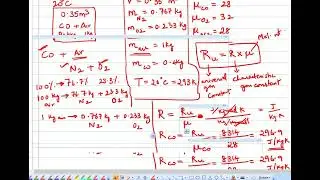 20°C
0.35m³
CO + Air
m N₂ = 0.767 kg
m O₂ = 0.233 kg
m air = 1kg
m CO = 0.4kg
T = 20°C = 293K
μ CO = 28
= 32
= 28
Ru = R × μ
Mol. wt
universal gas constant
characteristic gas constant
CO + Air
N₂ + O₂
100% → 76.7% 23.3%
100 kg → 76.7 kg + 23.3 kg
N₂ O₂
1 kg air → 0.767 kg + 0.233 kg
N₂ O₂
R = Ru / μ = J / kgK
R CO = Ru / μ CO = 8314 / 28 = 296.9 J/kgK
Ru = 8314 = 296.9
J/kgK